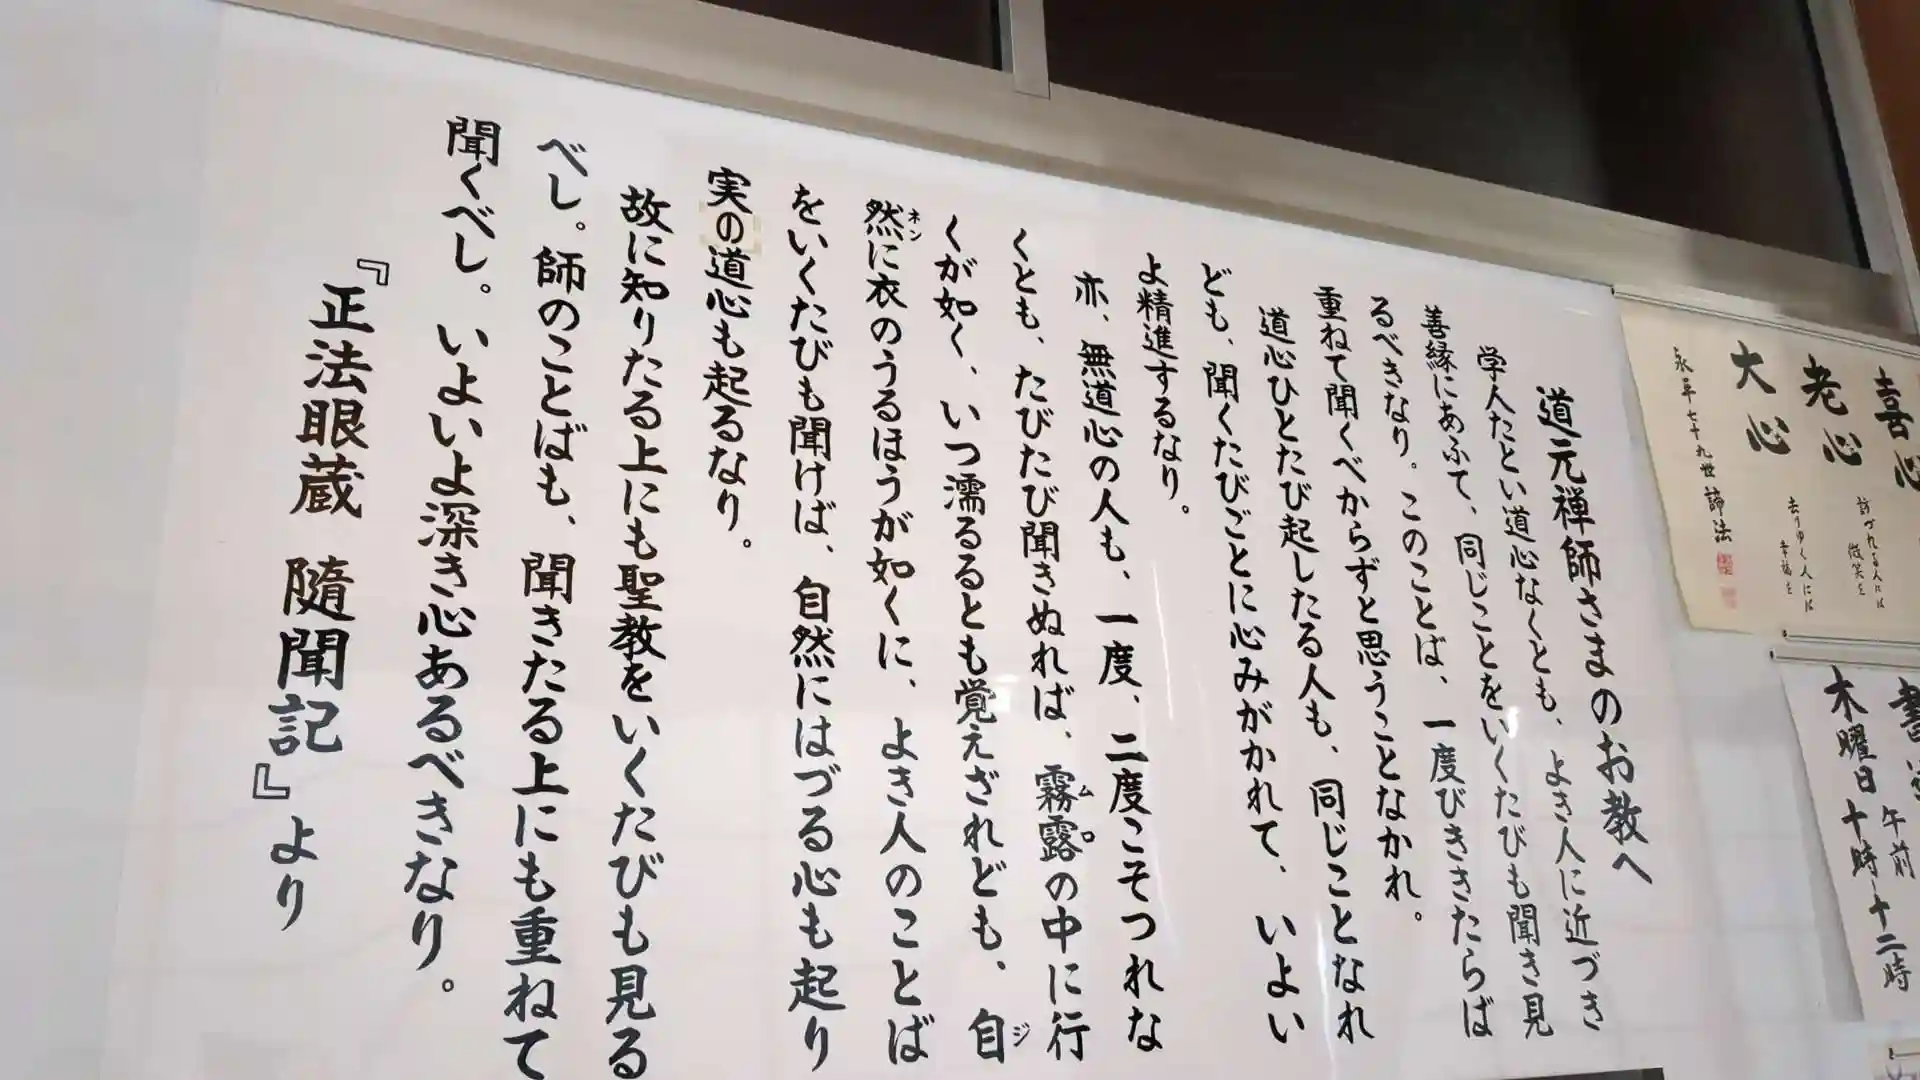 道元禅師さまのお教へ
学人たとい道心なくとも、よき人に近づき
善縁にあふて、同じことをいくたびも聞き見
るべきなり。このことば、一度びききたらば
重ねて聞くべからずと思うことなかれ。
道心ひとたび起したる人も、同じことなれ
ども、聞くたびごとに心みがかれて、いよい
よ精進するなり。
亦、無道心の人も、一度、二度こそつれな
くとも、たびたび聞きぬれば、霧露の中に行
ムロ
くが如く、いつ濡るるとも覚えざれども、自
ジ
然に衣のうるほうが如くに、よき人のことば
ネン
をいくたびも聞けば、自然にはづる心も起り
実の道心も起るなり。
故に知りたる上にも聖教をいくたびも見る
べし。師のことばも、聞きたる上にも重ねて
聞くべし。いよいよ深き心あるべきなり。
『正法眼蔵 隨聞記』より
喜心
老心
訪づれる人には
微笑を
大心
去りゆく人には
幸福を
永平七十九世 諦法
午前
木曜日十時-十二時